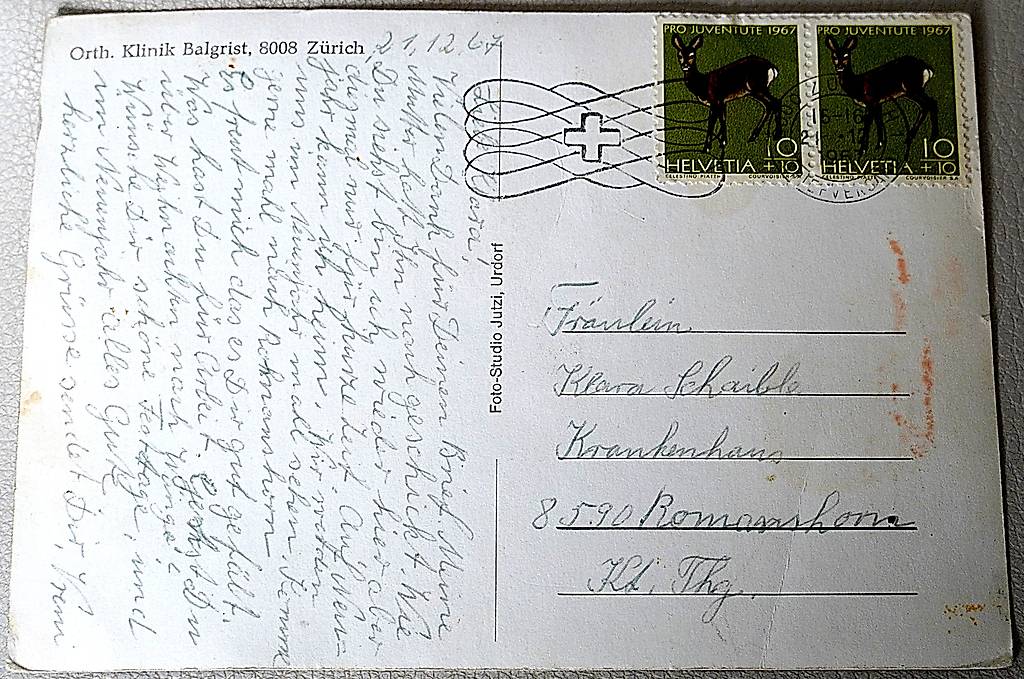 Orth. Klinik Balgrist, 8008 Zürich
21.12.67
Klara,
Vielen Dank für Deinen Brief. Meine
Mutter hat ihn nachgeschickt. Wie
Du siehst bin ich wieder hier aber
dizmal nur für kurze Zeit. Auf Neu-
jahr kann ich heim. Wir werden
uns im Neujahr mal sehen. Komme
gerne mahl nach Romanshorn
Es freut mich das es Dir gut gefällt.
Was hast Du für Arbeit. Gehst Du
über Weihnachten nach
Wünsche Dir schöne Festtage, und
im Neuenjahr alles Gute.
herzliche Grüsse sendet Dir,
Foto-Studio Jutzi, Urdorf
PRO JUVENTUTE 1967
10
HELVETIA +10
CELESTINO PIATTI COURVOISIER S.A.
PRO JUVENTUTE 1967
10
HELVETIA +10
CELESTINO PIATTI COURVOISIER S.A.
Fräulein
Klara Schaible
Krankenhaus
8590 Romanshorn
Kt. Thg.